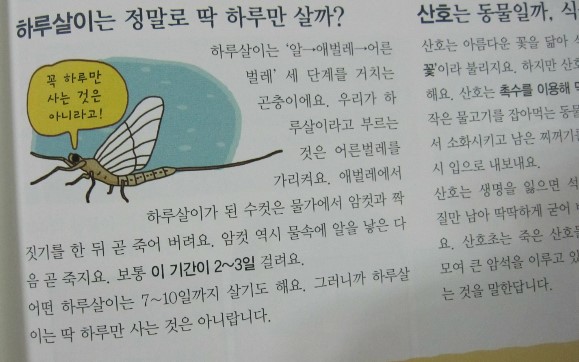 하루살이는 정말로 딱 하루만 살까?
꼭 하루만
사는 것은
아니라고!
하루살이는 '알→애벌레→어른
벌레' 세 단계를 거치는
곤충이에요. 우리가 하
루살이라고 부르는
것은 어른벌레를
가리켜요. 애벌레에서
하루살이가 된 수컷은 물가에서 암컷과 짝
짓기를 한 뒤 곧 죽어 버려요. 암컷 역시 물속에 알을 낳은 다
음 곧 죽지요. 보통 이 기간이 2~3일 걸려요.
어떤 하루살이는 7~10일까지 살기도 해요. 그러니까 하루살
이는 딱 하루만 사는 것은 아니랍니다.
산호는 동물일까, 식
산호는 아름다운 꽃을 닮아
꽃'이라 불리지요. 하지만 산호
해요. 산호는 촉수를 이용해
작은 물고기를 잡아먹는 동물
서 소화시키고 남은 찌꺼기
시 입으로 내보내요.
산호는 생명을 잃으면 석
질만 남아 딱딱하게 굳어
요. 산호초는 죽은 산호들
모여 큰 암석을 이루고 있
는 것을 말한답니다.